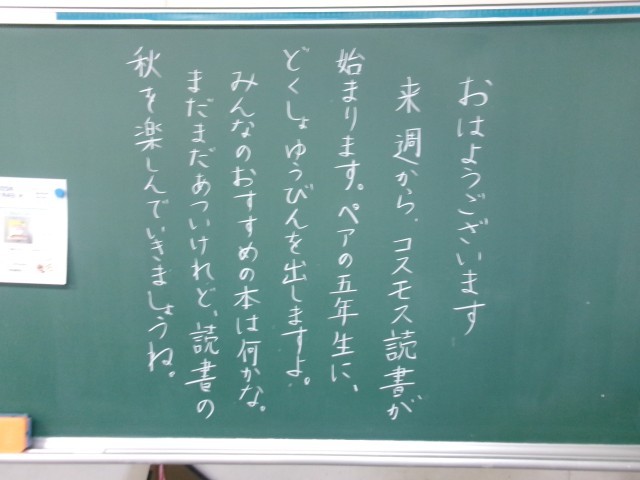 おはようございます
来週から、コスモス読書が
始まります。ペアの五年生に、
どくしょゆうびんを出しますよ。
みんなのおすすめの本は何かな。
まだまだあついけれど、読書の
秋を楽しんでいきましょうね。